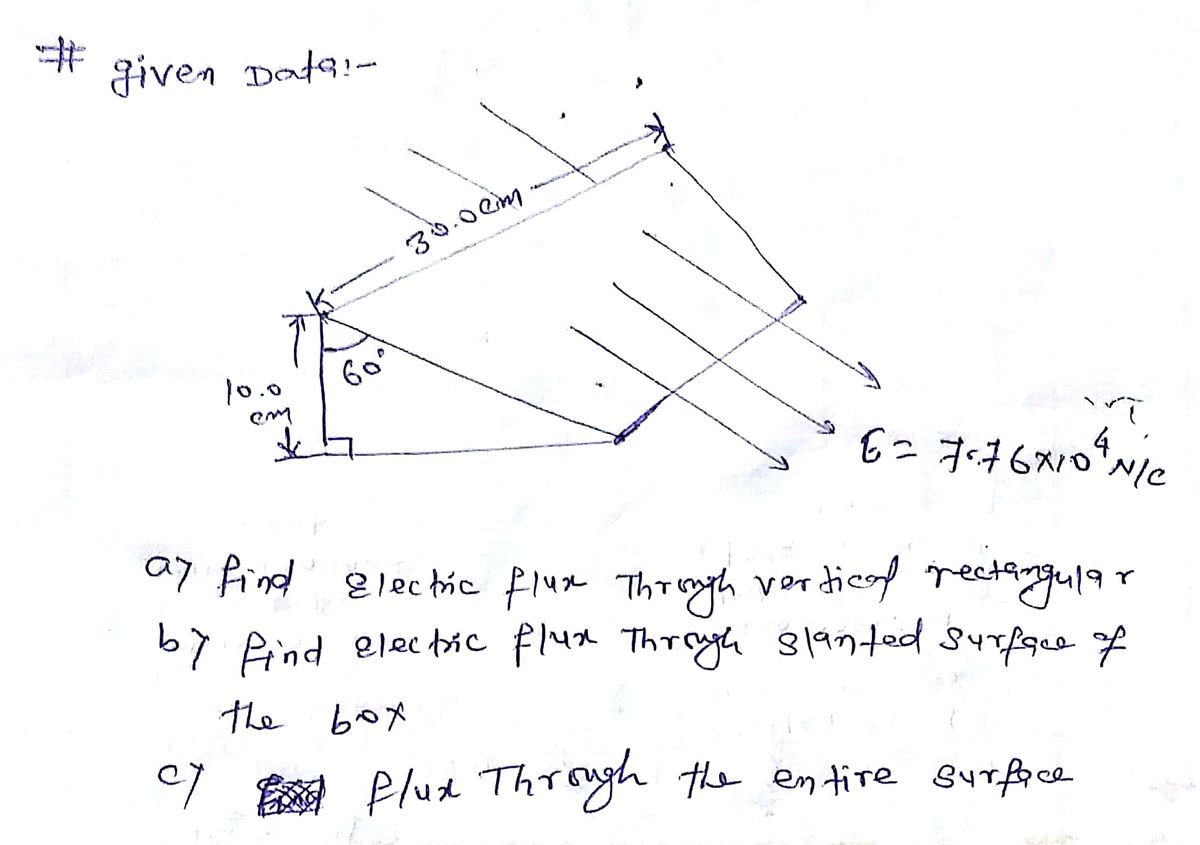 # given Data:-
30.0cm
60°
10.0
cm
E = 7.76x10⁴ N/C
a) find electric flux Through vertical rectangular
b) find electric flux Through slanted surface of
the box
c) flux Through the entire surface